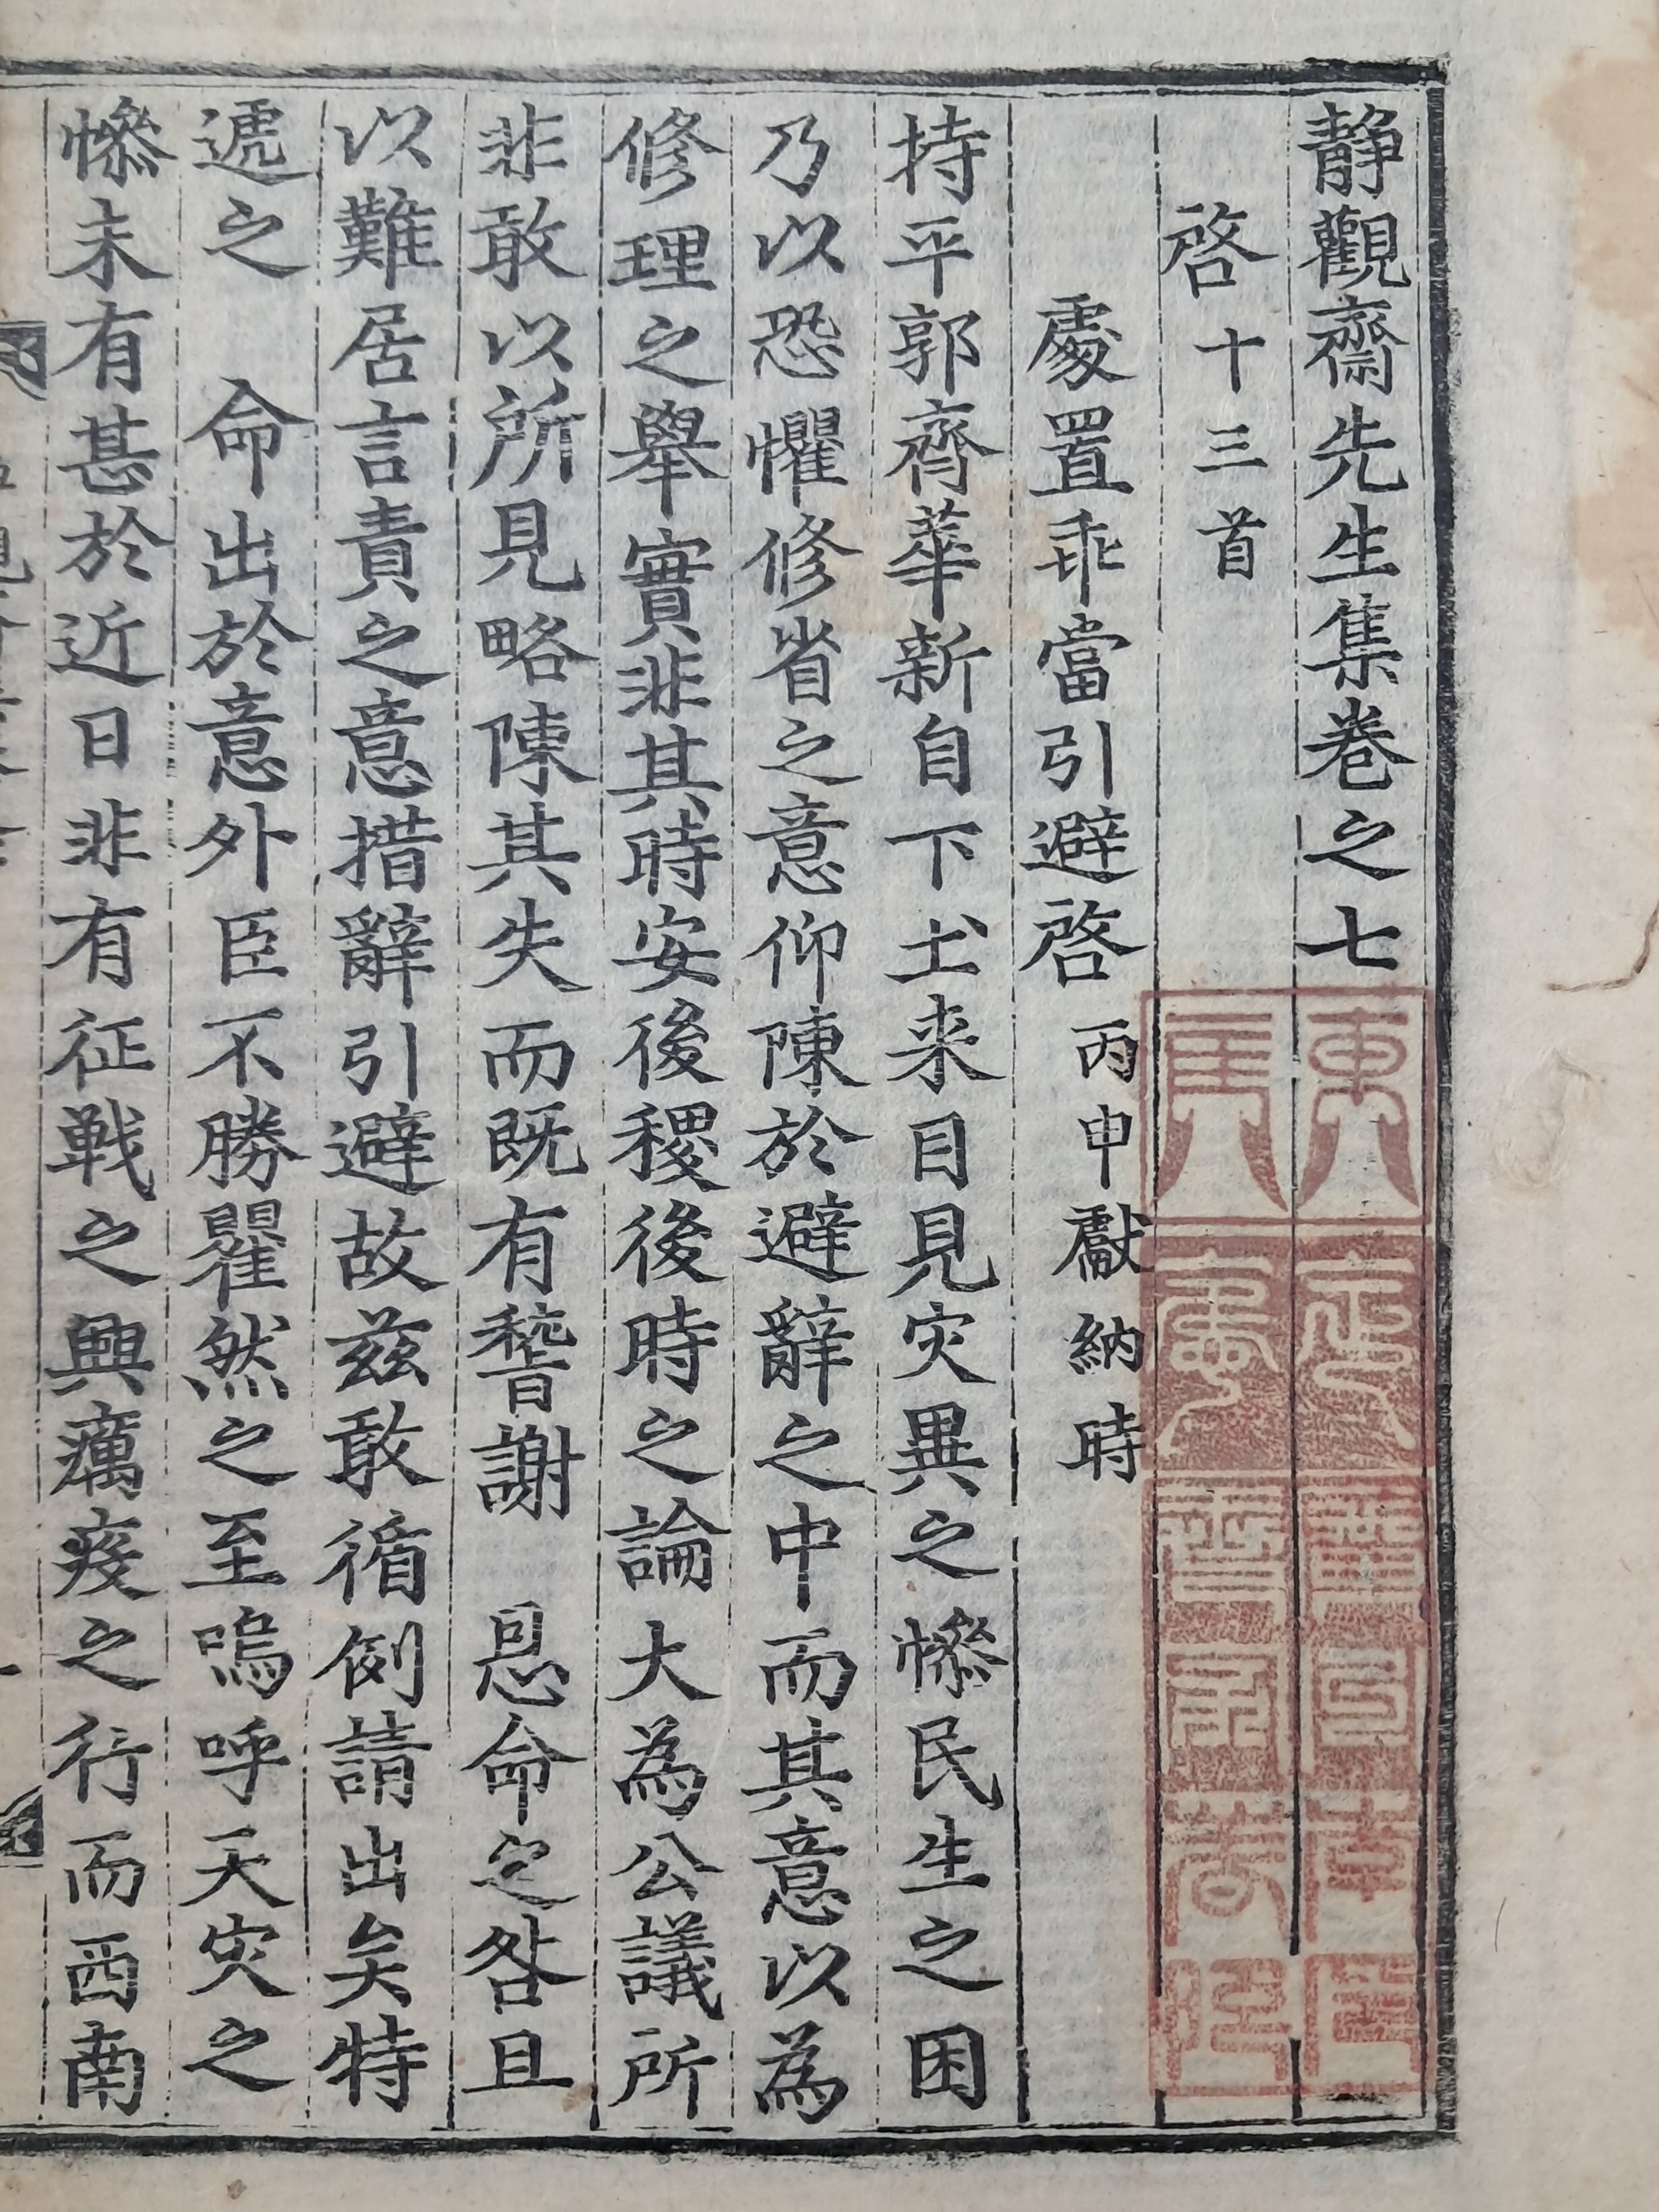 靜觀齋先生集卷之七
啓十三首
處置乖當引避啓丙申獻納時
持平郭齊華新自下土來目見灾異之慘民生之困
乃以恐懼修省之意仰陳於避辭之中而其意以為
修理之擧實非其時安後稷後時之論大為公議所
非敢以所見略陳其失而既有瞀謝 恩命之咎且
以難居言責之意措辭引避故玆敢循例請出矣特
遞之 命出於意外臣不勝瞿然之至嗚呼天灾之
慘未有甚於近日非有征戰之興癘疫之行而西南